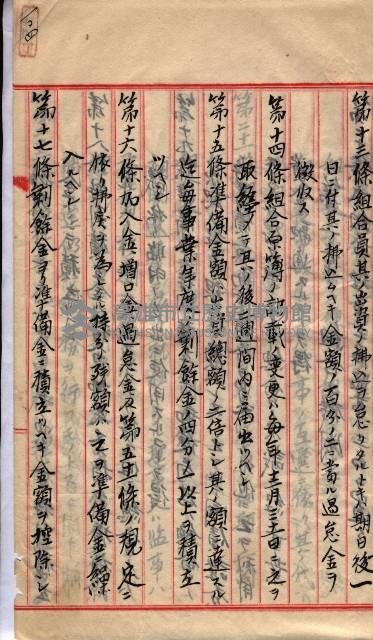 第十三條組合員其ノ出資ノ拂込ヲ怠リタルトキハ期日後一
日ニ付其ノ拂込ムヘキ金額ノ百分ノ二ニ當ル過怠金ヲ
徴収ス
第十四條組合原簿ノ記載變更ハ毎年十二月三十一日ニ之ヲ
取纏メテ其ノ後二週間内ニ届出ツヘシ
第十五條準備金額ハ出資總額ノ二倍トシ其ノ額ニ達スル
迄毎事業年度ノ剰餘金ノ四分ノ一以上ヲ積立
ツヘシ
第十六條加入金増口金過怠金及第五十條ノ規定ニ
依リ拂戻ヲ為ササル持分ノ殘額ハ之ヲ準備金ニ繰
入ルヘシ
第十七條剰餘金ヨリ準備金ニ積立ツヘキ金額ヲ控除シ